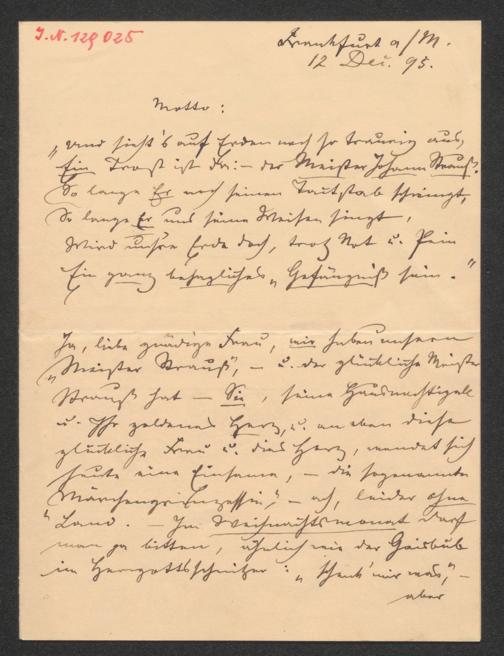 J.N. 129025
Frankfurt a/M.
12 Dec. 95.
Motto:
„Und sieht's auf Erden noch so traurig aus,
Ein Trost ist da: – der Meister Johann Strauß.
So lange Er noch seinen Taktstab schwingt,
So lange Er uns seine Weisen singt,
Wird unsre Erde doch, trotz Not u. Pein
Ein ganz behagliches „Gefängniß sein."
Ja, liebe gnädige Frau, wir haben unsern
„Meister Strauß", – u. der glückliche Meister
Strauß hat – Sie, seine Hausnachtigall
u. Ihr goldenes Herz, u. an eben diese
glückliche Frau u. dies Herz, wendet sich
heute eine Einsame, – die sogenannte
Märchenprinzessin," – ach, leider ohne
"Land. – Im Weihnachtsmonat darf
man ja bitten, ähnlich wie der Gaisbub
im Herrgottschnitzer: „schenk' mir was," –
aber